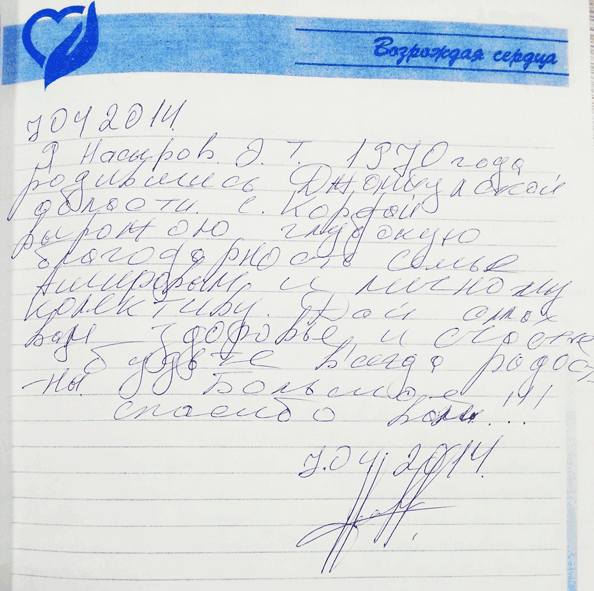 Возрождая сердца
7 04 2014.
Я Насыров. Э. Т. 1970 года
родившись Джамбулской
области с. Кордой
выражаю глубокую
благодарность семье
Амировым и личному
колективу. Дай
вам здоровье, и счастье
будьте всегда радост
-ны Большое
спасибо вам!!!
7.04. 2014.